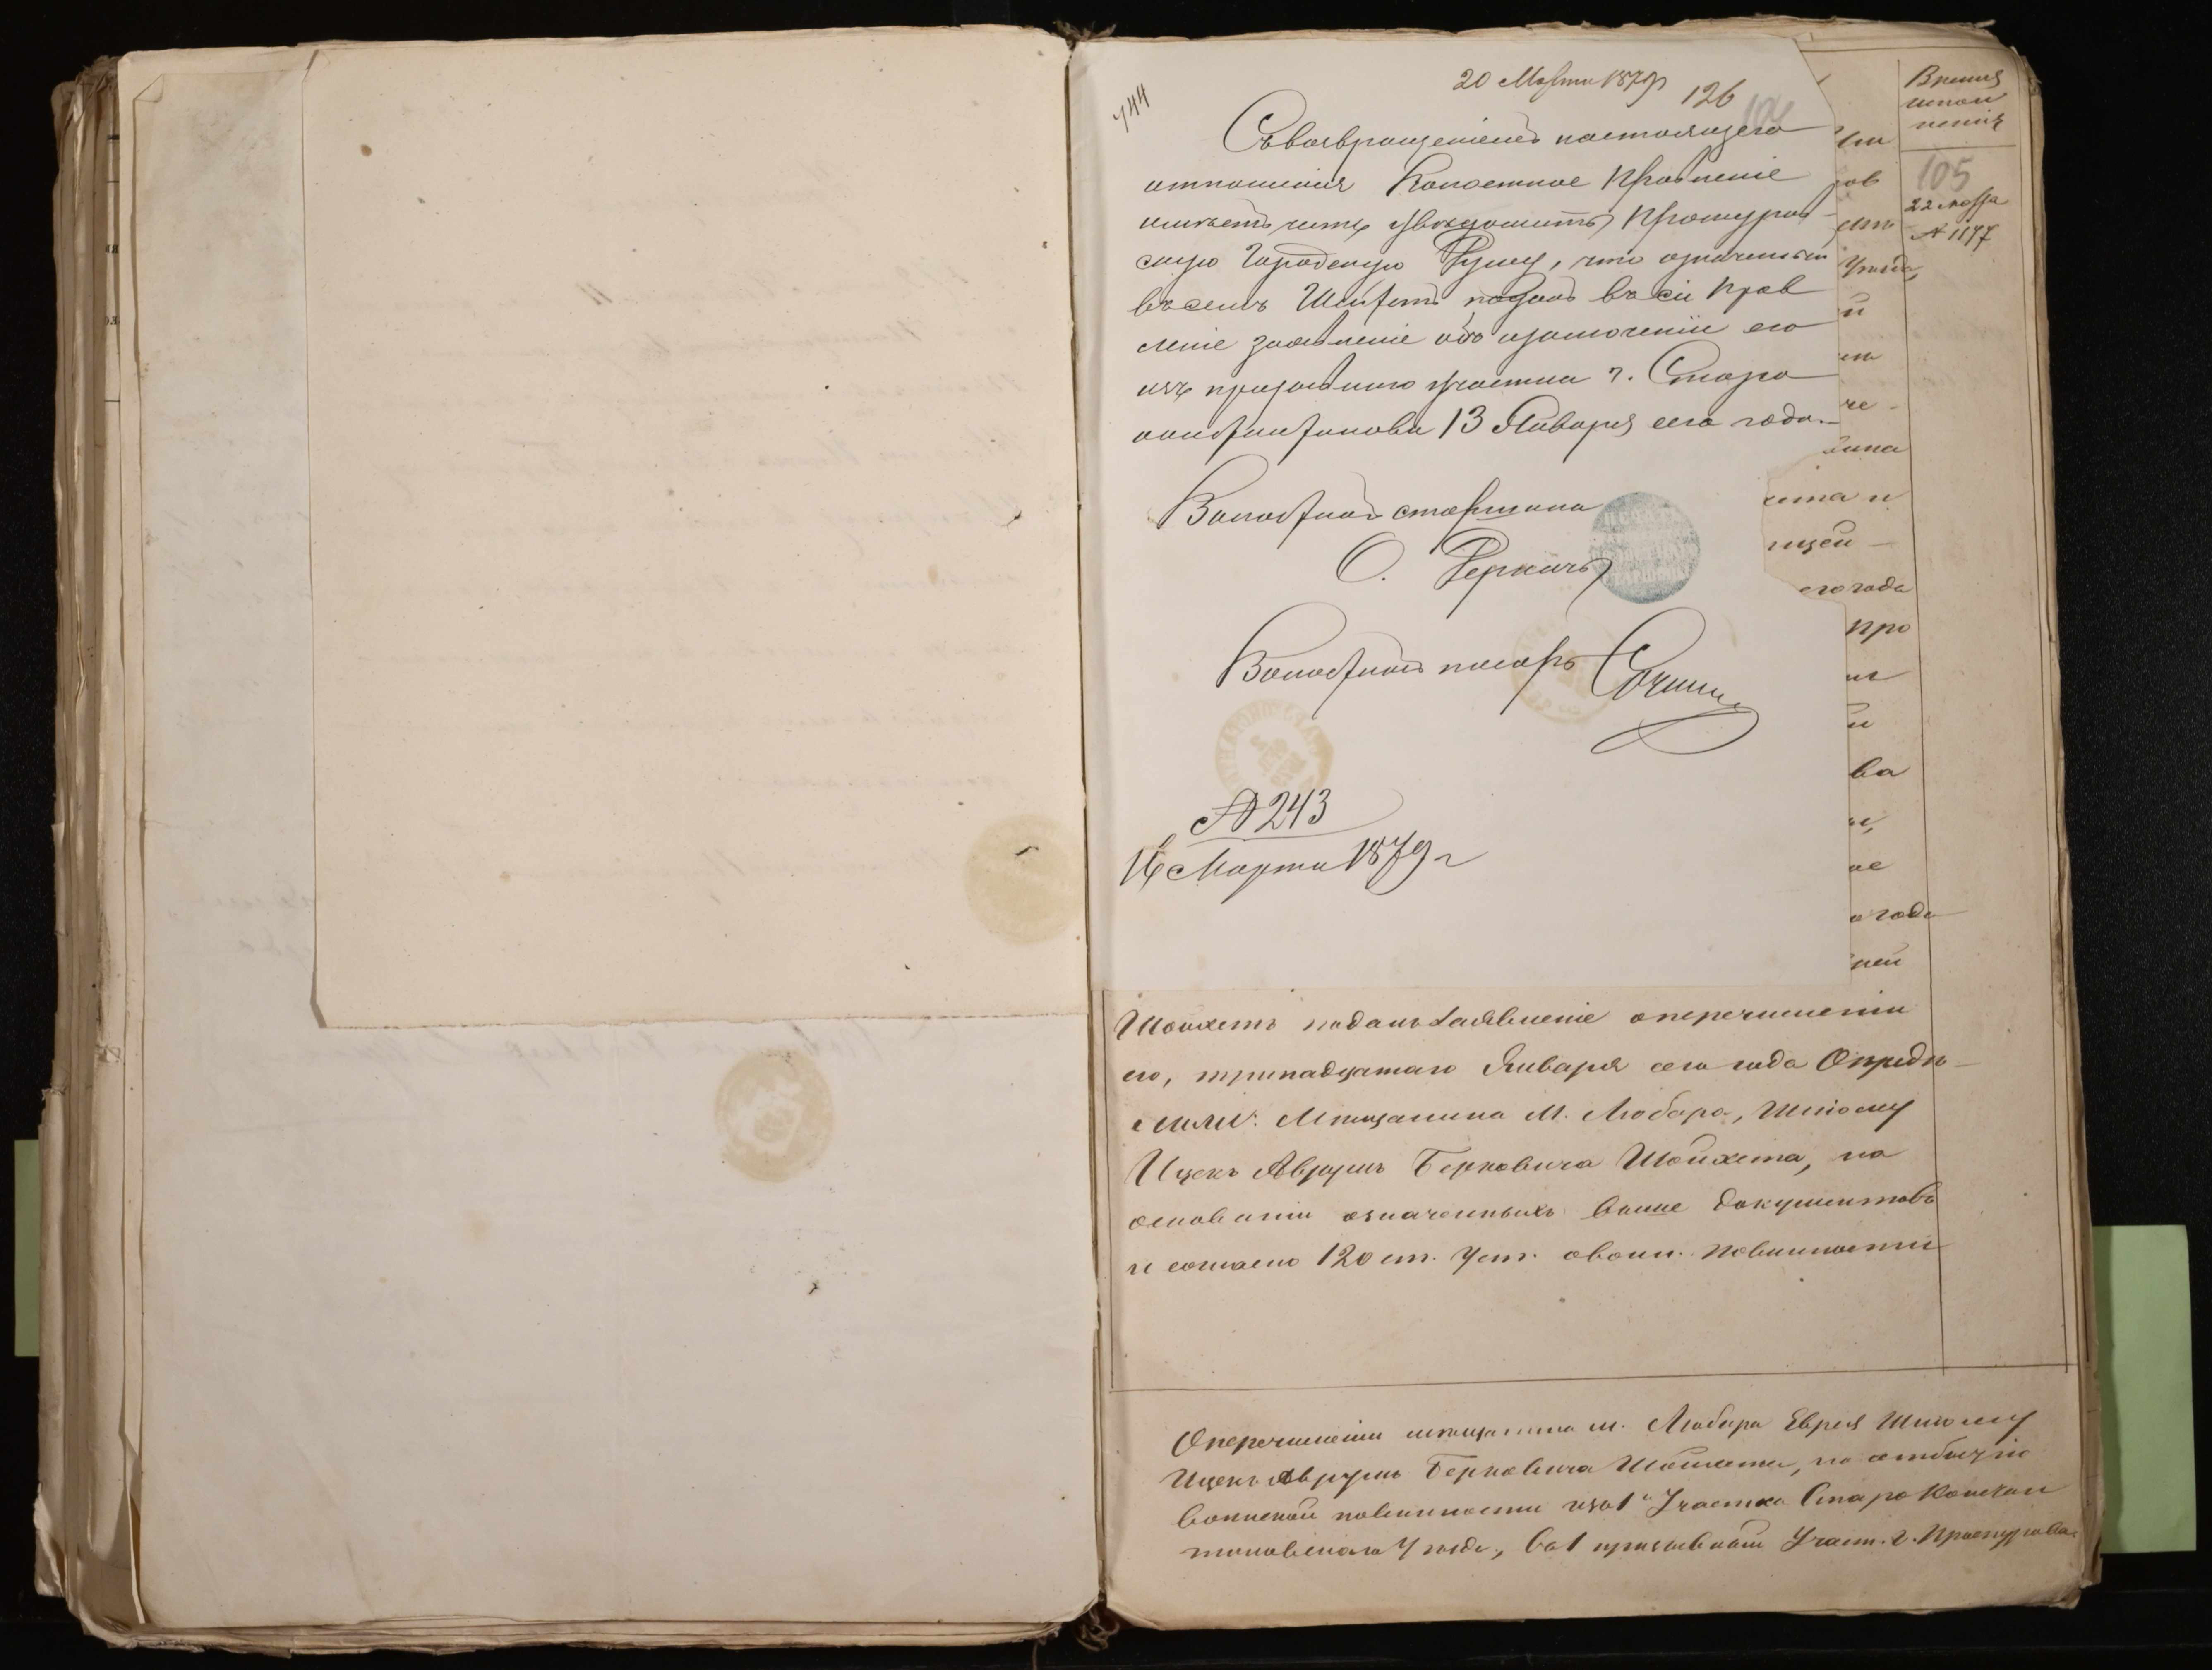 744
20 Марта 1879 г
126
104
Съ возвращеніемъ настоящего
отношенія Волостное Правленіе
имѣетъ честь увѣдомить Проскуров-
скую Городскую Думу, что означенный
въ семъ Шойхетъ подалъ въ сіе Прав
леніе заявленіе объ исключеніи его
изъ призывного участка г. Старо
константинова 13 Января сего года.
Волостной старшина
О.
Волостной писарь
№ 243
16 Марта 1879 г
Время
испол
ненія
105
22 марта
№ 1177
уѣзда,
й
че-
хета и
его года
про
и
ва
ое
о года
ней
Шойхетъ подалъ заявленіе о перечисленіи
его, тринадцатаго Января сего года Опредѣ-
лили: Мѣщанина М. Любара, Шлиому
Ицекъ Аврумъ Берковича Шойхета, на
основаніи означенныхъ выше документовъ
и согласно 120 ст. Уст. о воин. повинности
О перечисленіи мѣщанина м. Любара Еврея Шлиому
Ицекъ Аврумъ Берковича Шойхета, по отбытію
воинской повинности изъ 1 Участка Старо Констан
тиновскаго Уѣзда, въ 1 призывный Участ. г. Проскурова.